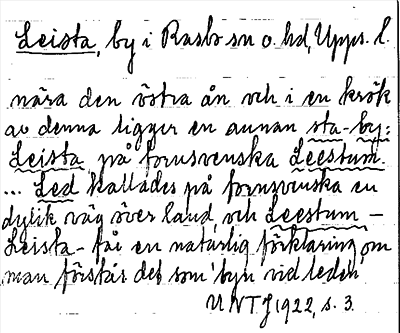 Leista, by i Rasbo sn o. hd, Upps. l.
nära den östra ån och i en krök
av denna ligger en annan sta-by:
Leista på fornsvenska Leestum.
... Led kallades på fornsvenska en
dylik väg över land, och Leestum –
Leista – får en naturlig förklaring, om
man förstår det som 'byn vid leden'
UNT J 1922, s. 3.